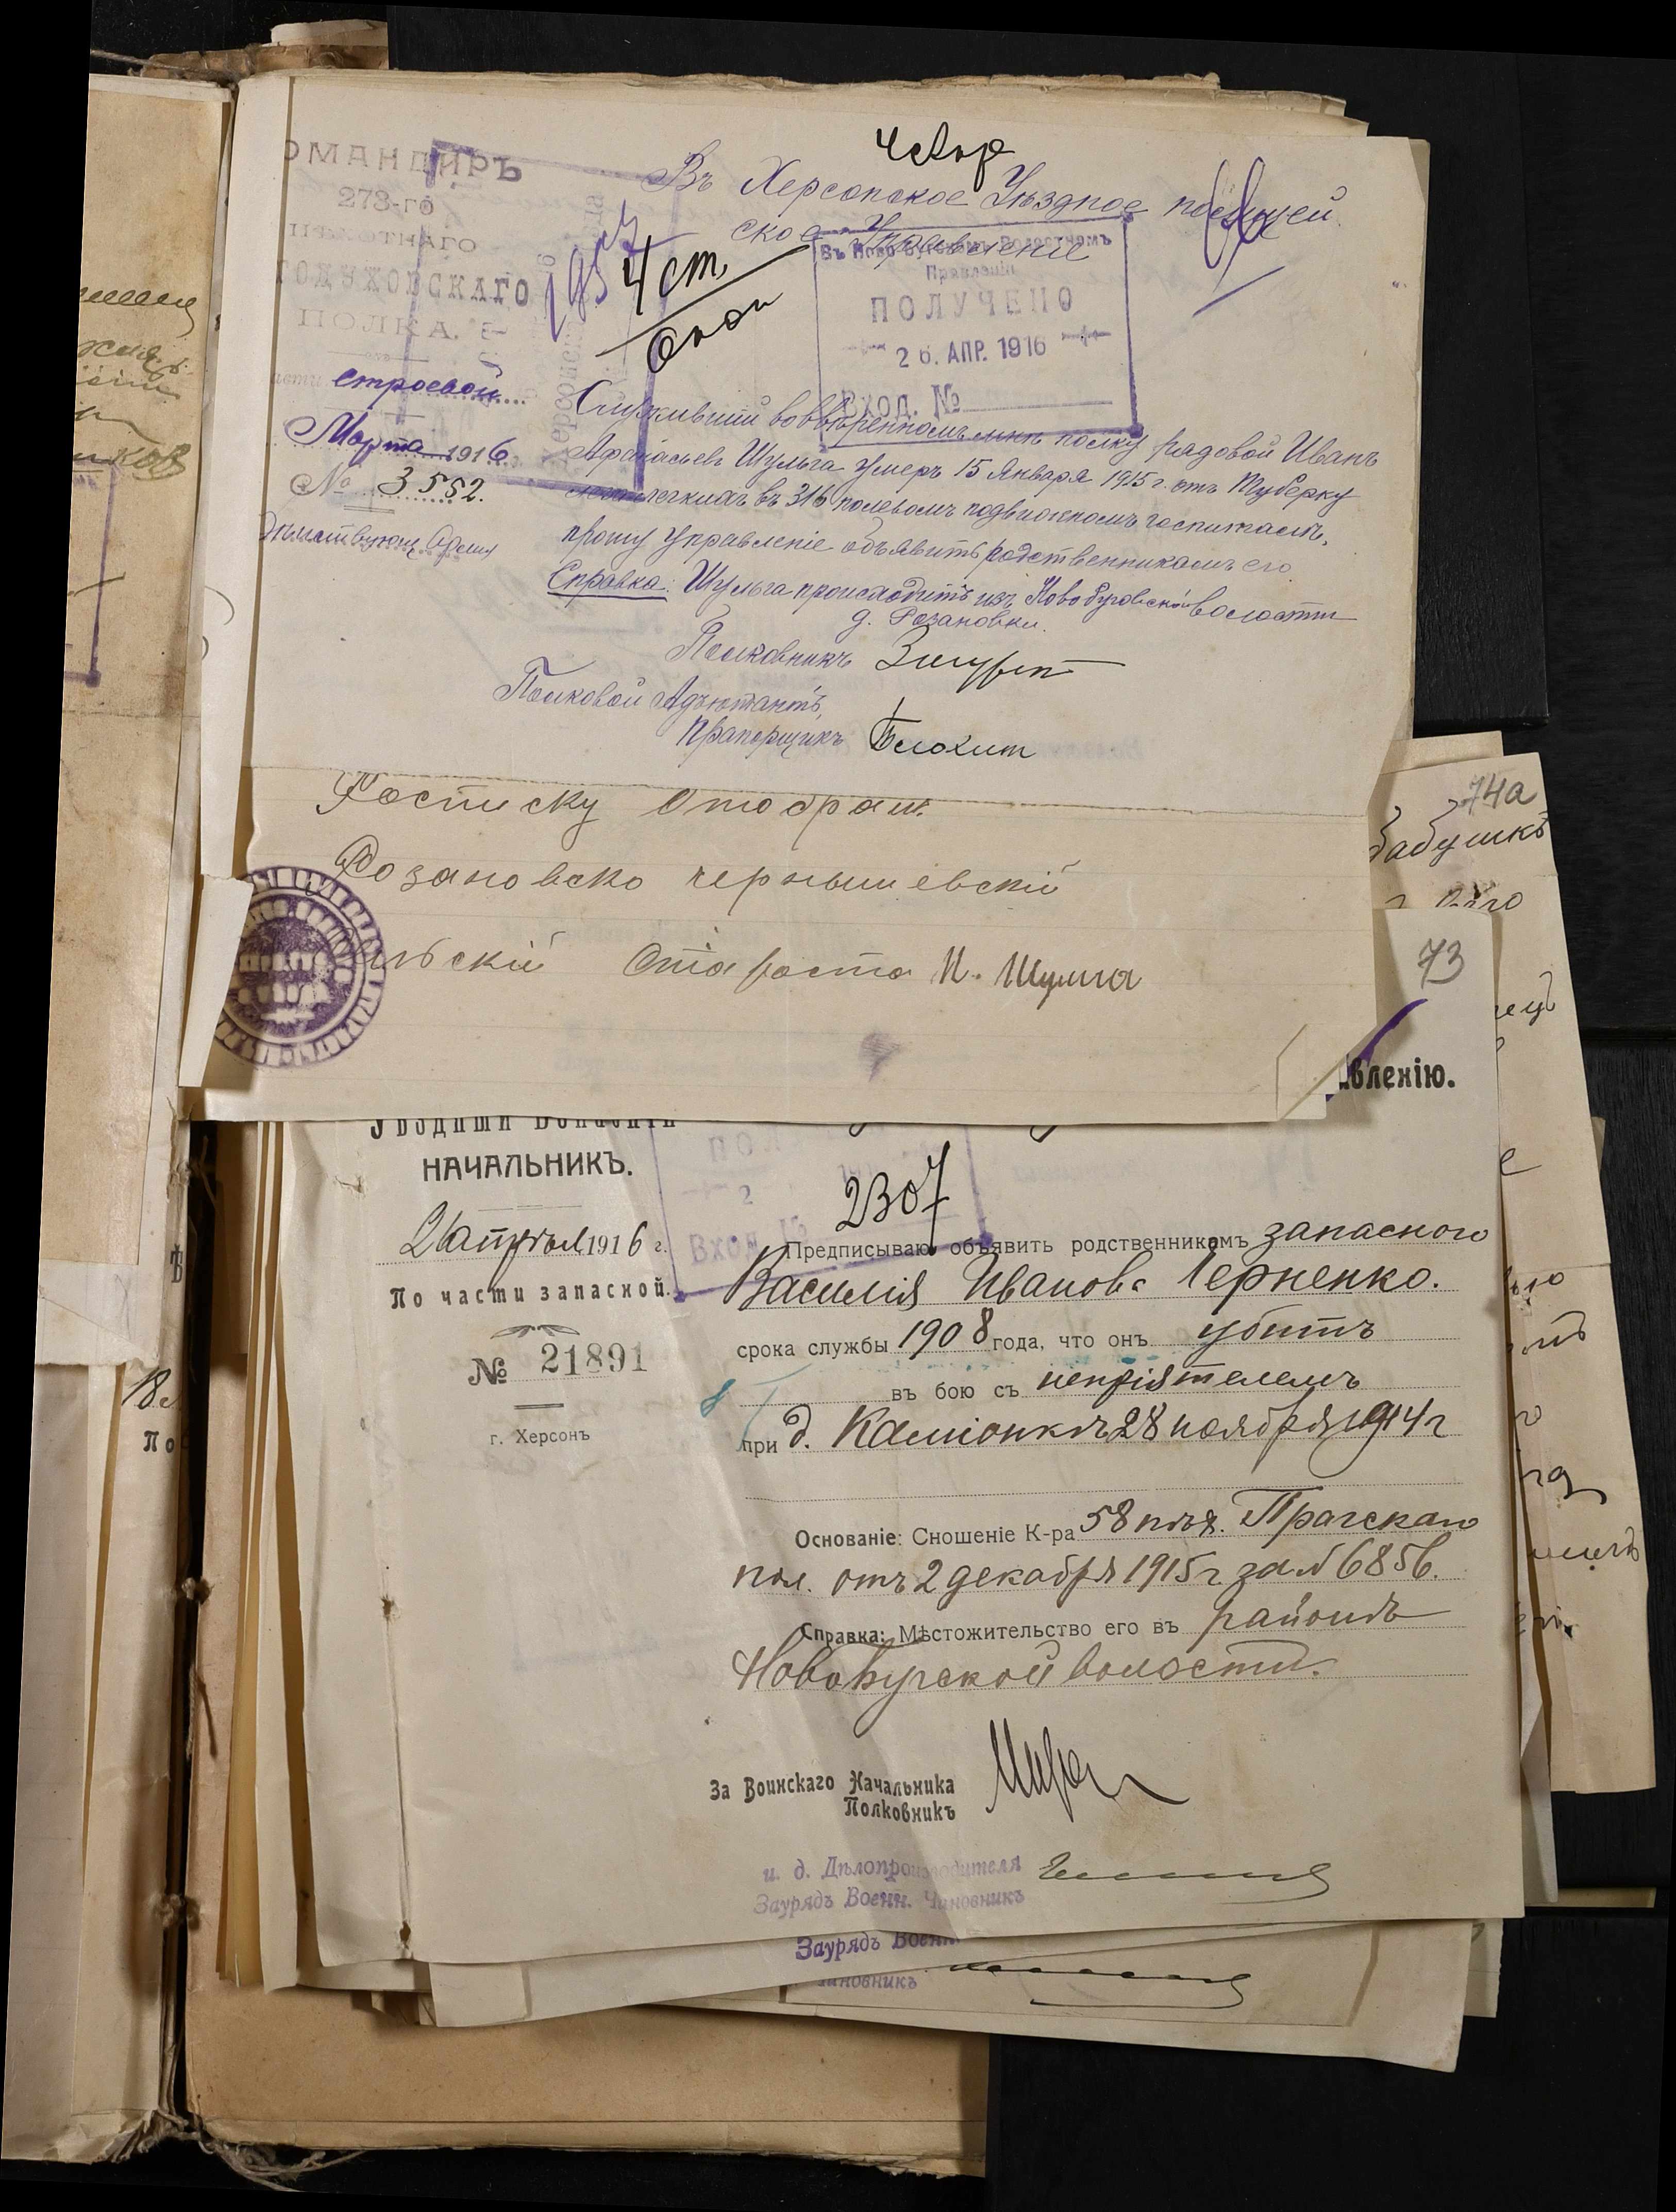 ОМАНДИРЪ
273-го
ПѢХОТНАГО
ГОДУХОВСКАГО
ПОЛКА.
асти строевой
Марта 1916
№ 3552.
Въ Херсонское Уѣздное полицей
ское Управленіе
4 ст.
Въ Ново-Бугскомъ Волостномъ
Правленіи
ПОЛУЧЕНО
26. АПР. 1916
Вход. №
Служившій во ввѣренномъ мнѣ полку рядовой Иванъ
Афанасьевъ Шульга умеръ 15 Января 1915 г. отъ туберку
легкихъ въ 316 полевомъ подвижномъ госпиталѣ,
прошу управленіе объявить родственникамъ его
Справка: Шульга происходитъ изъ Новобугской волости
д. Розановки.
Полковникъ
Полковой Адъютантъ,
Прапорщикъ
Росписку отобралъ
Розановско чернышевскій
льскій Староста И. Шульга
74а
Бабушкѣ
73
авленію.
НАЧАЛЬНИКЪ.
26 апрѣля 1916 г.
По части запасной.
№ 21891
г. Херсонъ
Вход. №
2307
Предписываю объявить родственникамъ запасного
Василія Иванова Черненко.
срока службы 1908 года, что онъ убитъ
въ бою съ непріятелемъ
при д. Каміонкѣ 28 ноября 1914 г
Основаніе: Сношеніе К-ра 58 пѣх. Прагскаго
пол. отъ 2 декабря 1915 г. за № 6856.
Справка: Мѣстожительство его въ районѣ
Новобугской волости.
За Воинскаго Начальника
Полковникъ
и. д. Дѣлопроизводителя
Зaурядъ Военн. Чиновникъ
Зaурядъ Военн.
Чиновникъ